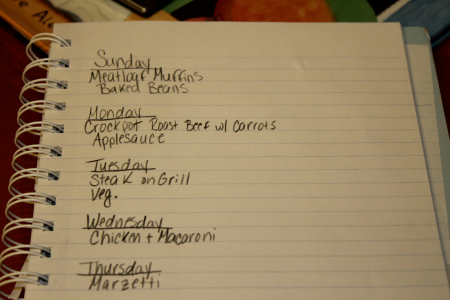 Sunday
Meatloaf Muffins
Baked Beans
Monday
Crockpot Roast Beef w/ Carrots
Applesauce
Tuesday
Steak on Grill
Veg.
Wednesday
Chicken + Macaroni
Thursday
Marzetti